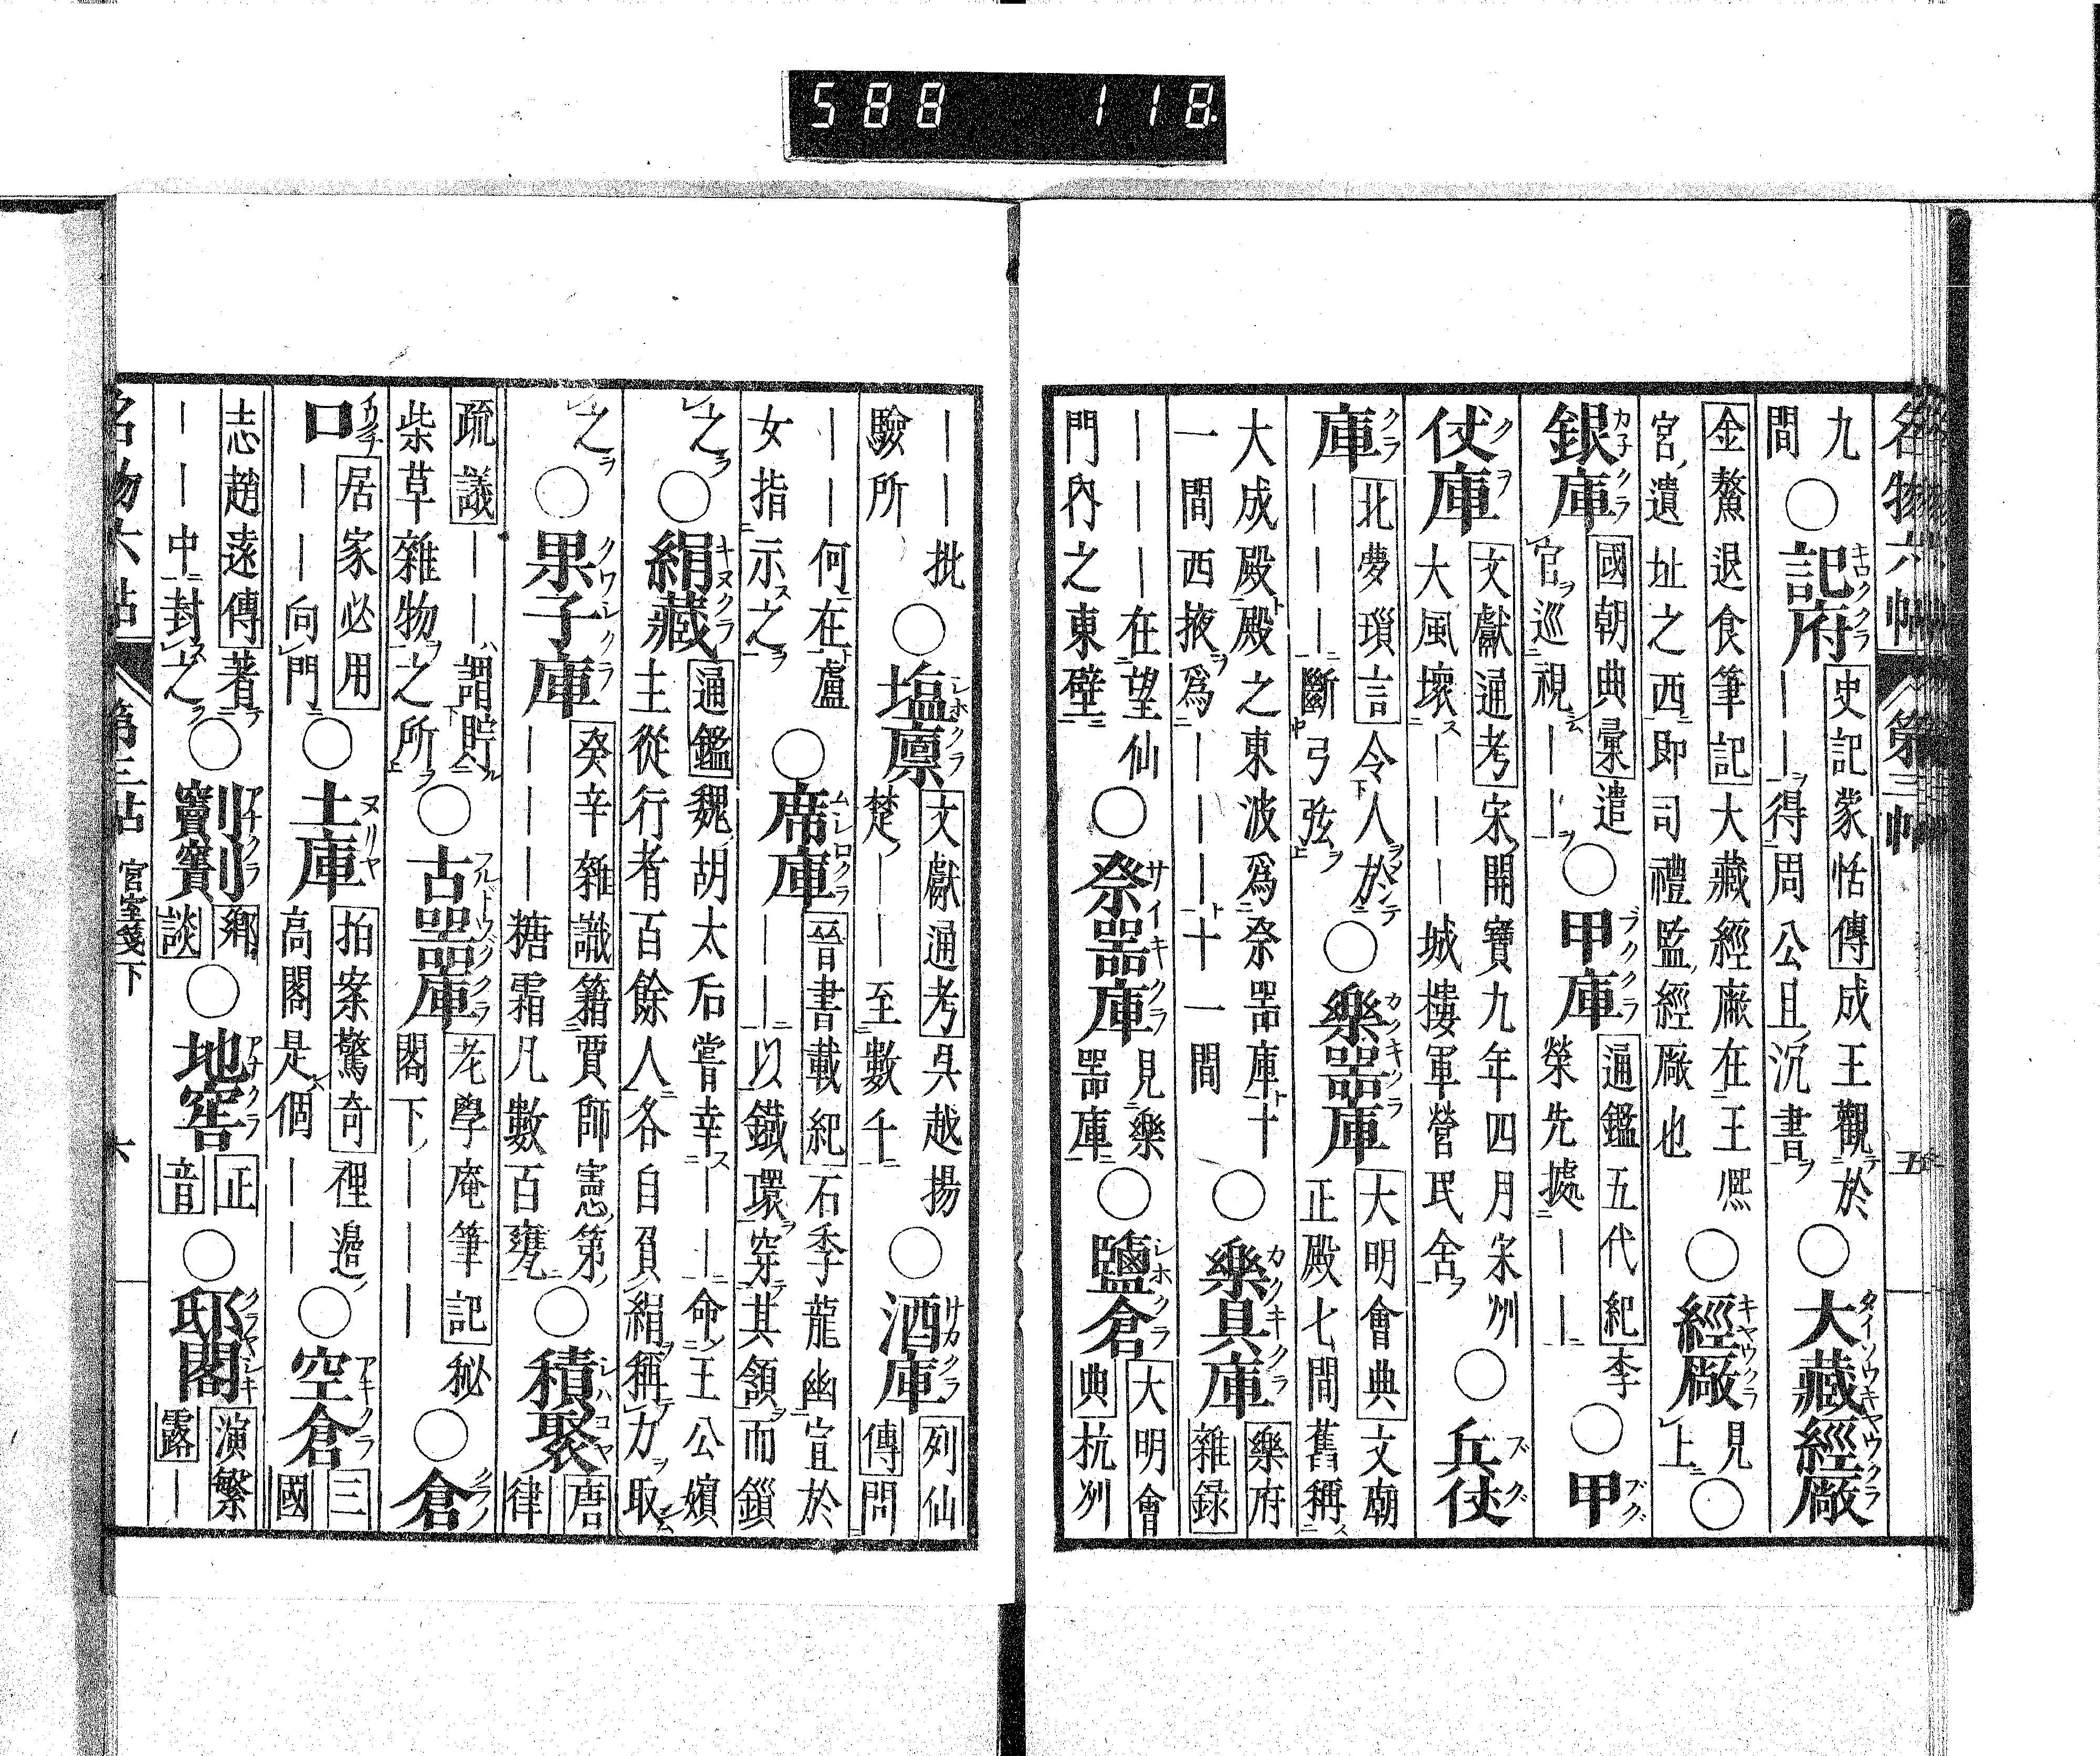 名物六帖 第三帖 五
九間○記府史記蒙恬傳成王觀於――得周公旦沉書○大藏經廠
金鰲退食筆記大藏經廠在王熙宮遺址之西即司禮監經廠也○經廠見上○
銀庫國朝典彙遣官巡視――○甲庫通鑑五代紀李榮先據――○甲
仗庫文獻通考宋開寶九年四月宋州大風壞―――城樓軍營民舍○兵仗
庫北夢瑣言令人於―――斷弓弦○樂器庫大明會典文廟正殿七間舊稱
大成殿殿之東波爲祭器庫十一間西掖爲―――十一間○樂具庫樂府雜録
―――在望仙門內之東壁○祭器庫見樂器庫○鹽倉大明會典杭州
――批驗所○塩廪文獻通考吳越揚楚――至數千○酒庫列仙傳問
――何在盧女指示之○席庫晉書載紀石季龍幽宣於――以鐵環穿其頷而鎖
之○絹藏通鑑魏胡太后嘗幸――命王公嬪主從行者百餘人各自負絹稱力取
之○果子庫癸辛雜識籍賈師憲第―――糖霜凡數百甕○積聚唐律
疏議――謂貯柴草雜物之所○古器庫老學庵筆記秘閣下―――○倉
口居家必用――向門○土庫拍案驚奇裡邊高閣是個――○空倉三國
志趙逵傳著――中封之○郷談○地窖正音○邸閣演繁露―
名物六帖 第三帖 宮室箋下 六
588 118